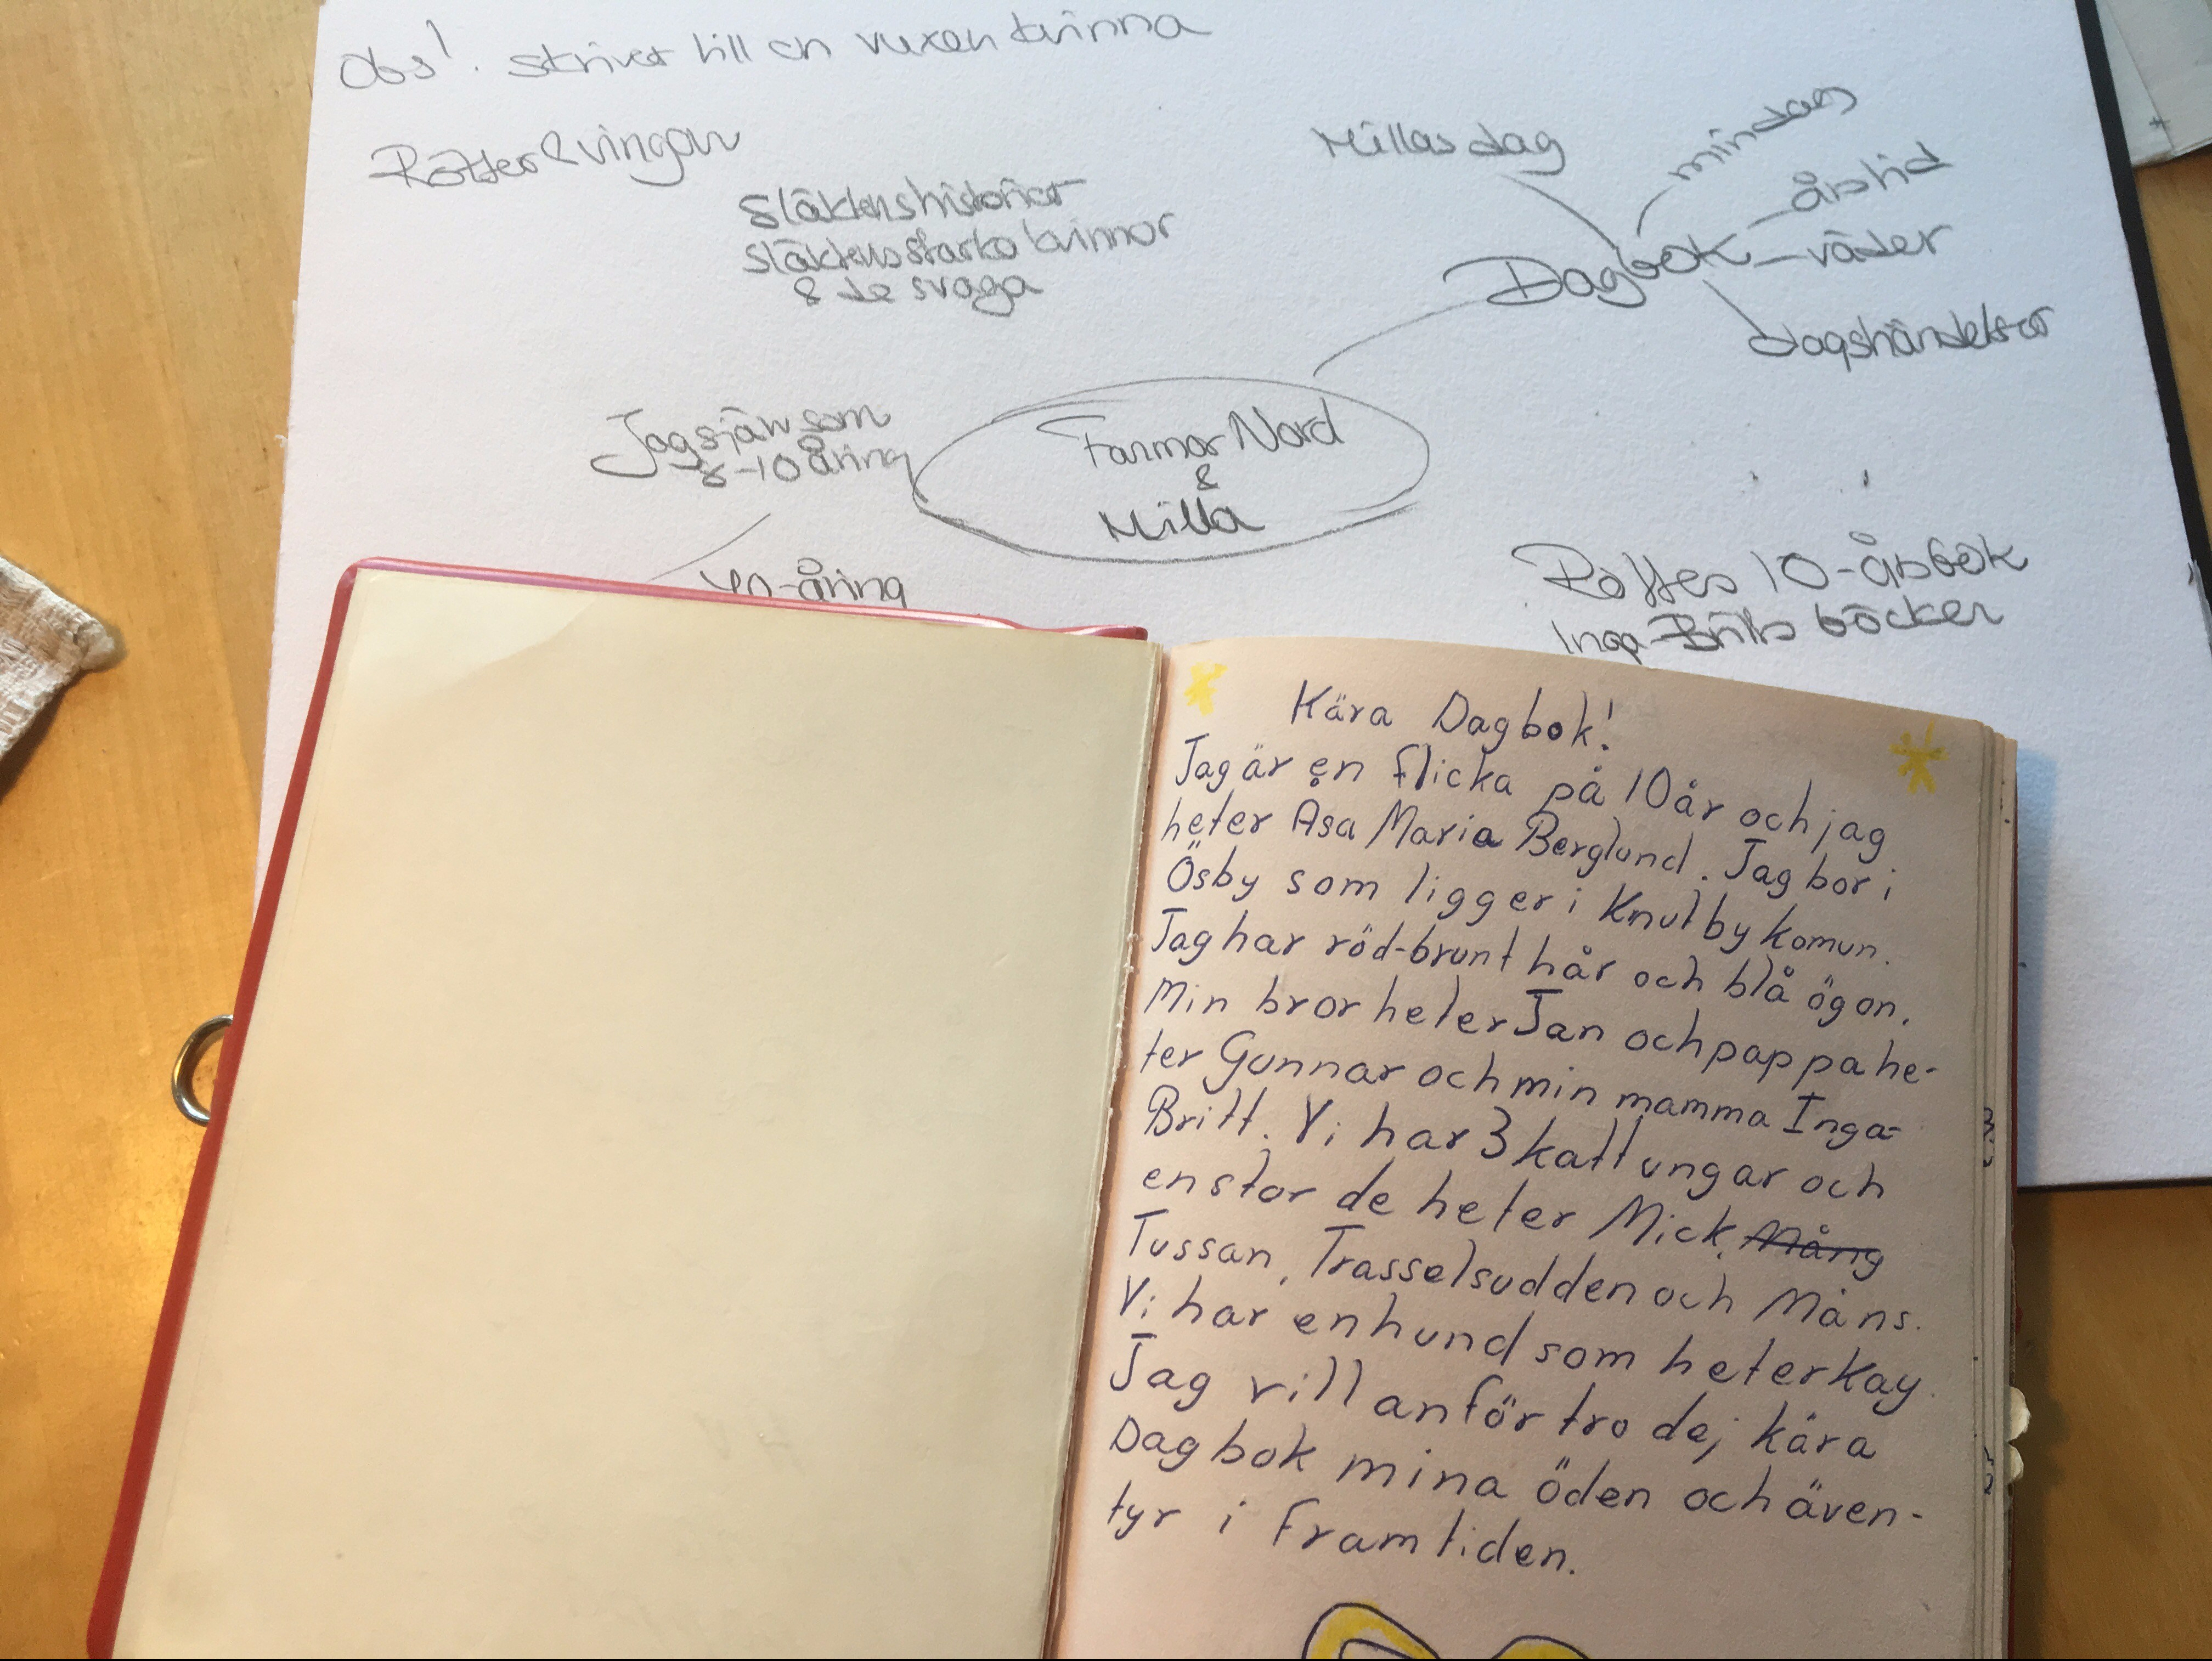 Obs! skriver till en vuxen kvinna
Rötter & vingar
Släktens historier
Släktens starka kvinnor
& de svaga
Millas dag
min dag
årstid
Dagbok
väder
dagshändelser
Jag själv som
8-10 åring
40-åring
Farmor Nord
&
Milla
10-årsbok
Inga-Britts böcker
Kära Dagbok!
Jag är en flicka på 10 år och jag
heter Åsa Maria Berglund. Jag bor i
Ösby som ligger i Knutby komun.
Jag har röd-brunt hår och blå ögon.
Min bror heter Jan och pappa he-
ter Gunnar och min mamma Inga-
Britt. Vi har 3 kattungar och
en stor de heter Mick, Mång
Tussan, Trasselsudden och Måns.
Vi har en hund som heter Kay.
Jag vill anförtro dej kära
Dagbok mina öden och även-
tyr i framtiden.